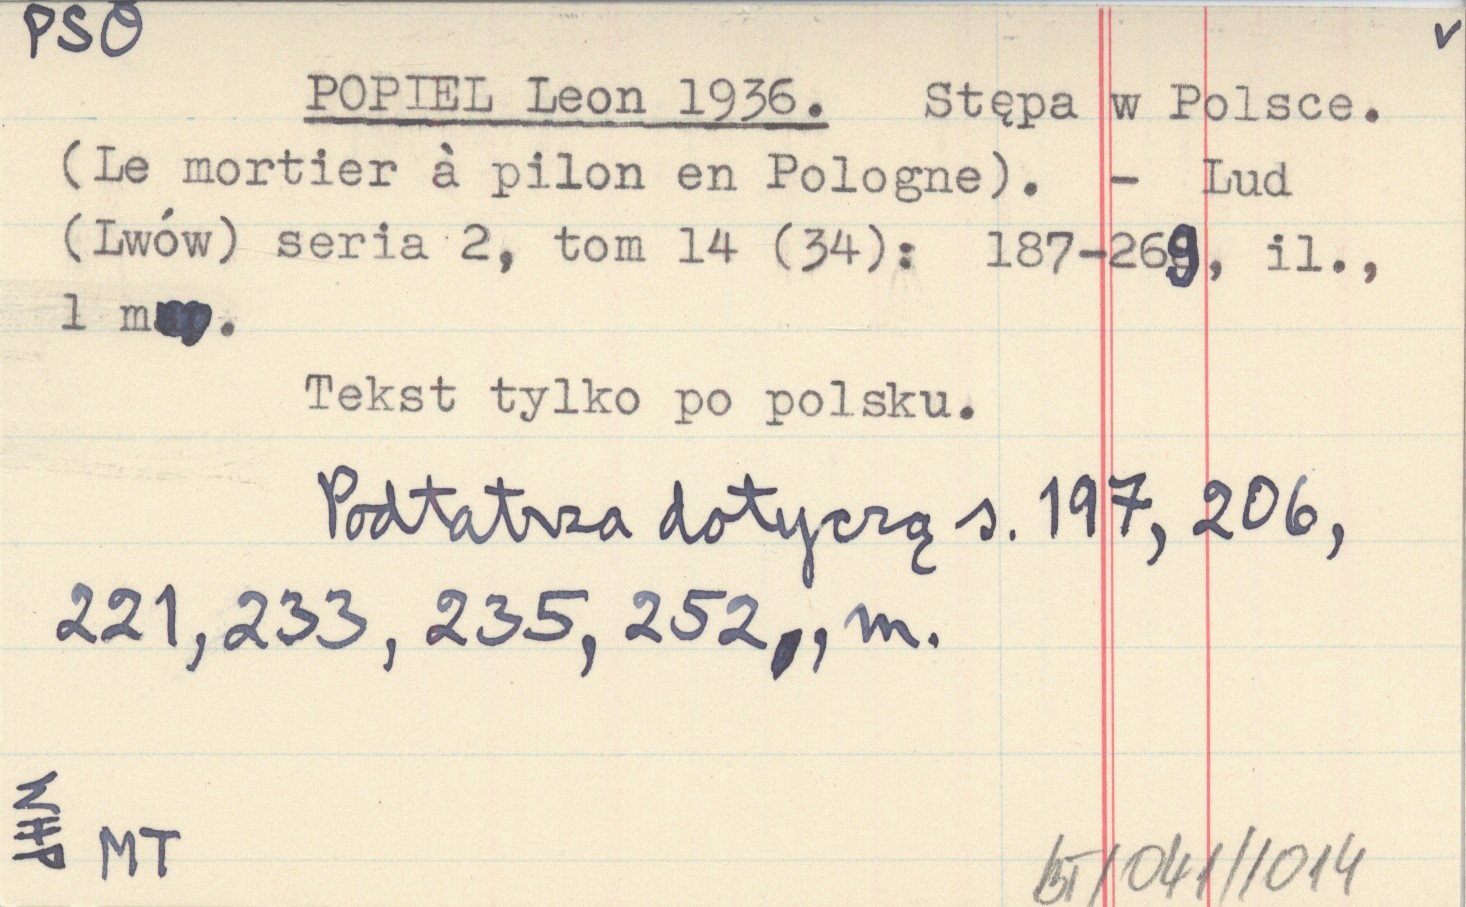 PSO
v
POPIEL Leon 1936. Stępa w Polsce.
(Le mortier à pilon en Pologne). - Lud
(Lwów) seria 2, tom 14 (34): 187-269, il.,
1 m.
Tekst tylko po polsku.
Podtatrza dotyczą s. 197, 206,
221, 233, 235, 252, m.
WHP
MT
/041/1014